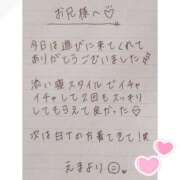 お兄様へ♡
今日は遊びに来てくれて
ありがとうございました!
添い寝スタイルでイチャ
イチャして2回もスッキリ
してもらえて良かった♡
次は日サロ行着てきて!笑
えまより☺